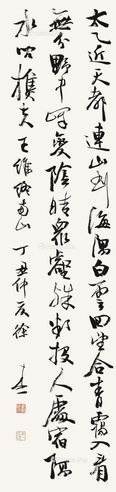 太乙近天都連山到海隅白雲回望合青靄入看
無分野中峰變陰晴眾壑殊欲投人處宿隔
水問樵夫 王維終南山 丁丑仲夏徐